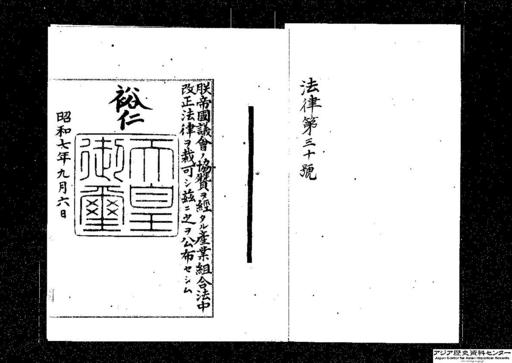 法律第三十號
朕帝國議會ノ協賛ヲ經タル産業組合法中
改正法律ヲ裁可シ茲ニ之ヲ公布セシム
裕仁
天皇
御璽
昭和七年九月六日
アジア歴史資料センター
Japan Center for Asian Historical Records